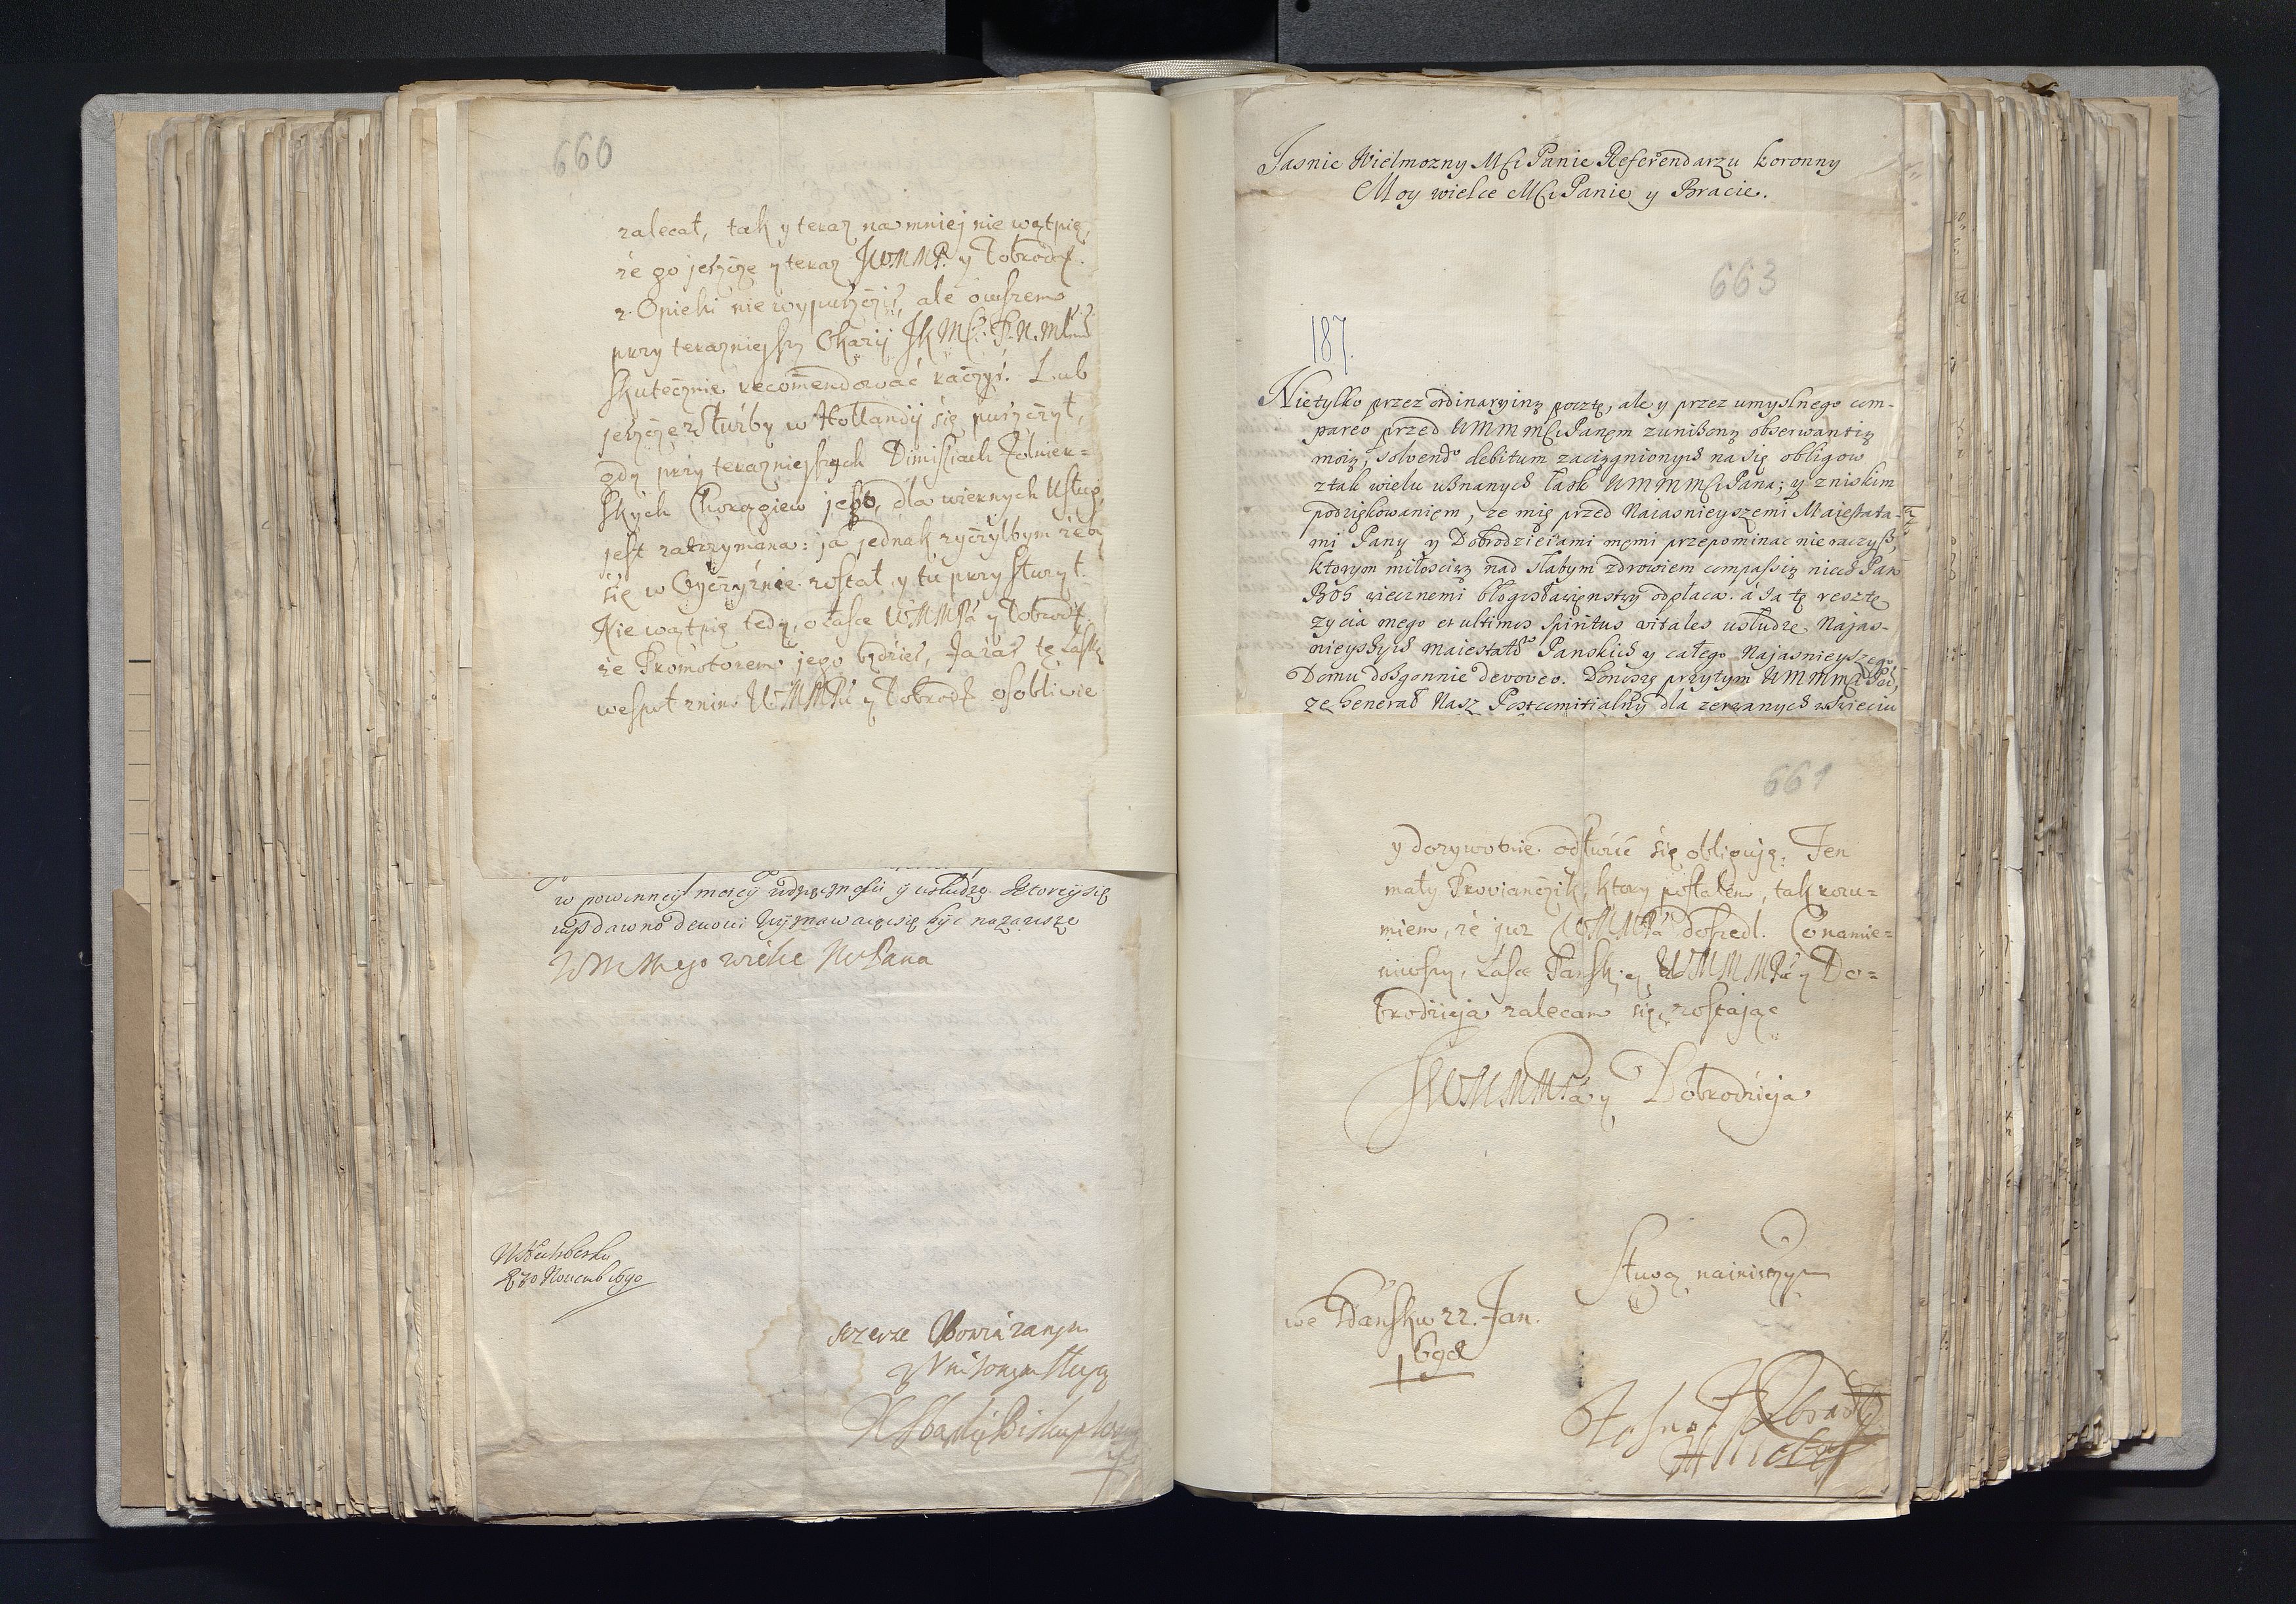 660
zalecał, tak y teraz namniej nie wątpię,
że go jeszcze y teraz JWMMP. y Dobrodz.
z Opieki nie wypuścić, ale owszem
przy terazniejszy Okazij JKMći P. N. Młu
skutecznie recom̄endować raczyś. Lub
jeszcze z Służby w Hollandij się puszczył,
gdy przy terazniejszych Dimissiach Żolnier=
skych Chorągiew jego, dla wiernych Usług
jest zatrzymana: ja jednak zyczyłbym żeby
się w Oyczyźnie został, y tu przysłużył.
Nie wątpię tedy, o łasce WMMPá y Dobrodz.
że Promotorem jego będzies, Ja záś tę łaskę
wespoł znim WMMPá y Dobrodz. osobliwie
w powinney mojey wdzięcznosci y usłudze. Ktoreÿ się
iusz dawno devovi
WM Mego wielce MPana
W Heilsberku
D 30 Novemb 1690
szczerze Obowiązanym
y Uniżonym sługą
Jasnie Wielmozny Mći Panie Referendarzu koronny
Moy wielce Mći Panie y Bracie.
663
187.
Nietylko przez ordinaryiną pocztę, ale y przez umyslnego com-
pareo przed WMMMći Panem z uniżoną obserwantią
moią, solvendo debitum zaciągnionych na się obligow
z tak wielu uznanych łask WMMMći Pana; y z niskim
podziękowaniem, że mię przed Naiasnieyszemi Majestata-
mi Pany y Dobrodzieiami memi przepominac nie raczysz,
ktorym miłosciwą nad słabym zdrowiem compassią niech Pan
Bóg wiecznemi błogosławięnstwy odpłaca. a ia tę resztę
zycia mego et ultimos spiritus vitales usłudze Najas-
nieyszych maiestatow Panskich y całego Najasnieyszego
Domu dozgonnie devoveo. Donoszę przytym WMMMći Pu,
ze Generał Nasz Postcomitialny dla zerwanych w Swieciu
661
y dozywotnie odsłużić się obliguję. Ten
mały Prowianczik, ktory posłałem, tak rozu=
miem, że juz WMMPá doszedł. Co namie=
niwszy, łasce Pańskiey WMMMPá y Do=
brodzieja zalecam się, zostając
JWMMMPá y Dobrodzieja
Sługą nainizszym
we Gdańsku 22. Jan.
1698